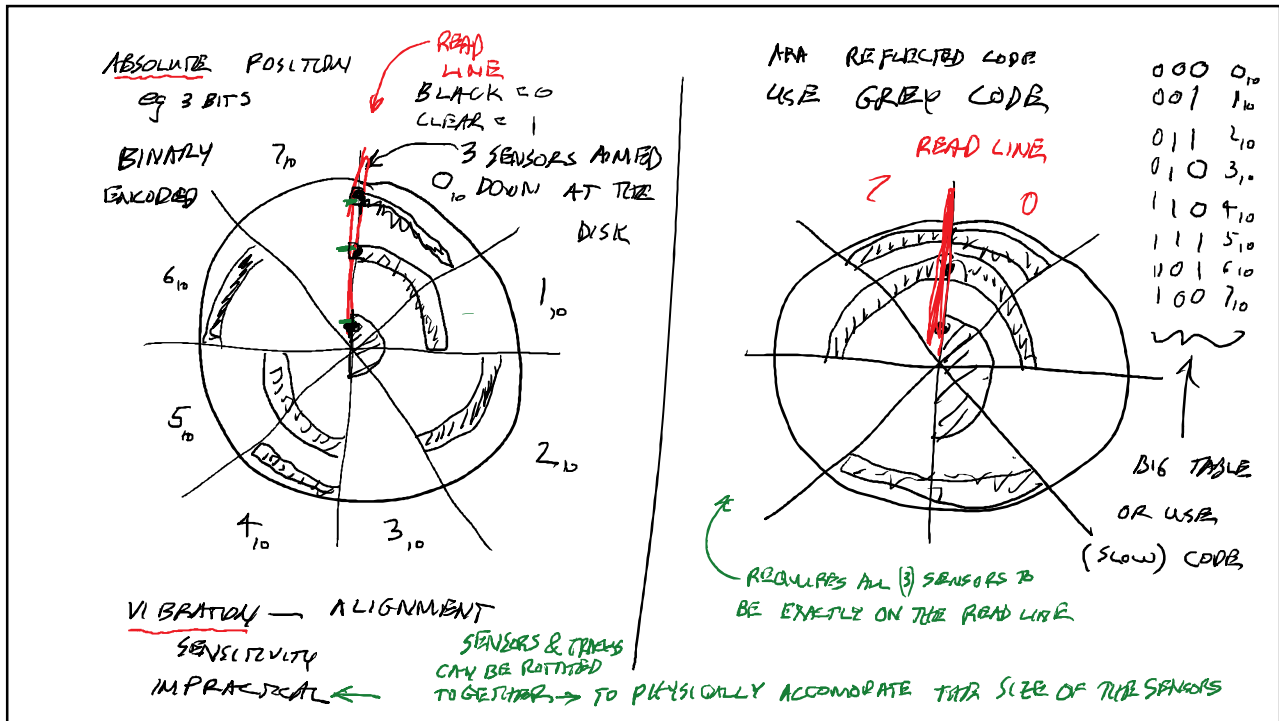 ABSOLUTE POSITION
eg 3 BITS
BINARY
ENCODED
READ
LINE
BLACK = 0
CLEAR = 1
3 SENSORS AIMED
DOWN AT THE
DISK
7₁₀
0₁₀
6₁₀
1₁₀
5₁₀
2₁₀
4₁₀
3₁₀
VIBRATION — ALIGNMENT
SENSITIVITY
IMPRACTICAL
SENSORS & TRACKS
CAN BE ROTATED
TOGETHER → TO PHYSICALLY ACCOMODATE THE SIZE OF THE SENSORS
AKA REFLECTED CODE
USE GREY CODE
READ LINE
7 0
000 0₁₀
001 1₁₀
011 2₁₀
010 3₁₀
110 4₁₀
111 5₁₀
101 6₁₀
100 7₁₀
BIG TABLE
OR USE
(SLOW) CODE
REQUIRES ALL (3) SENSORS TO
BE EXACTLY ON THE READ LINE